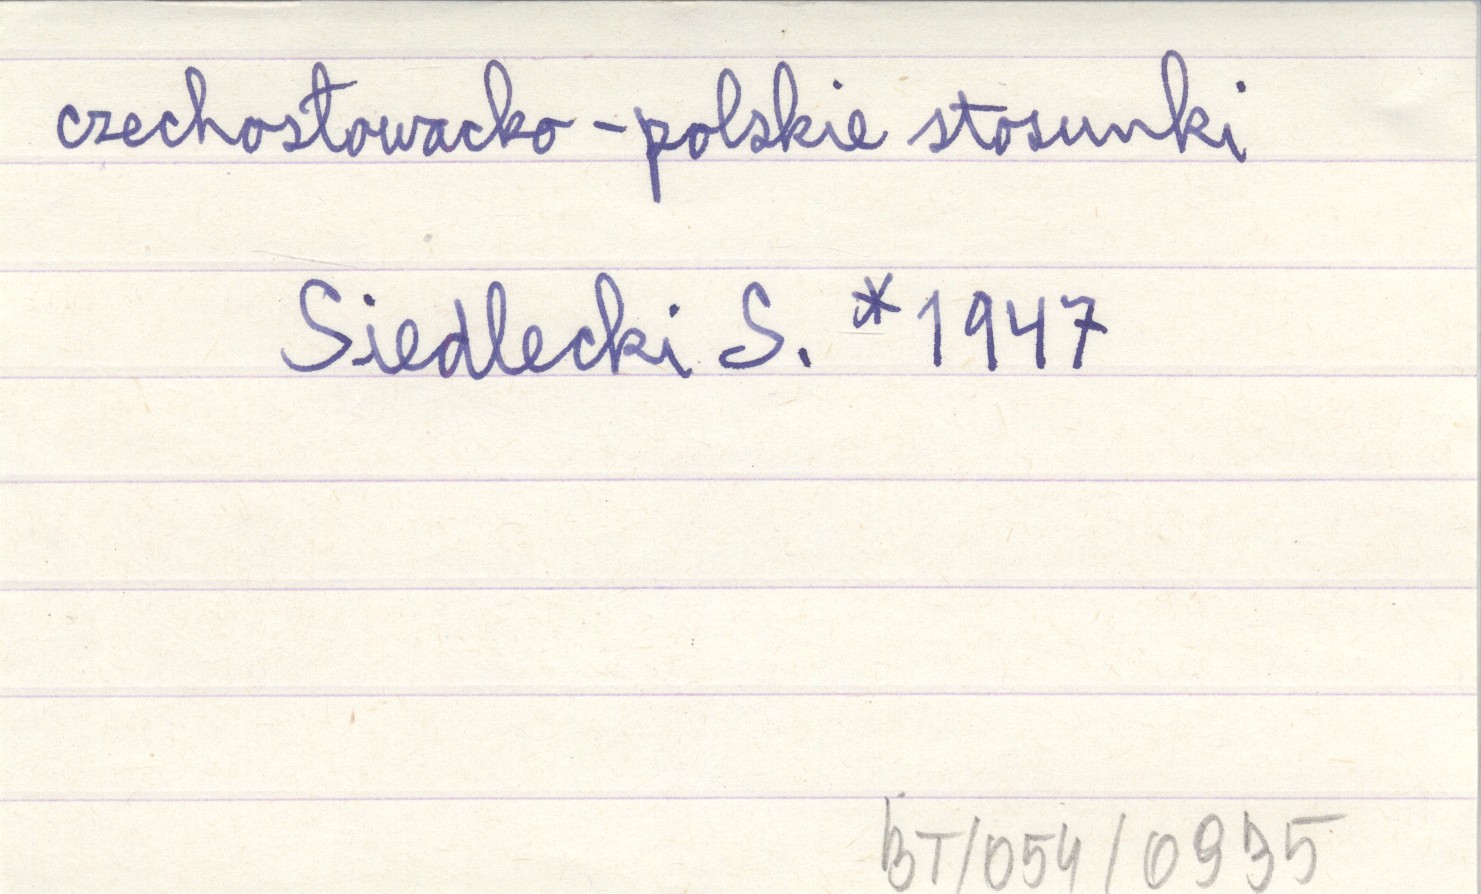 czechosłowacko - polskie stosunki
Siedlecki S. *1947
BT/054/0935